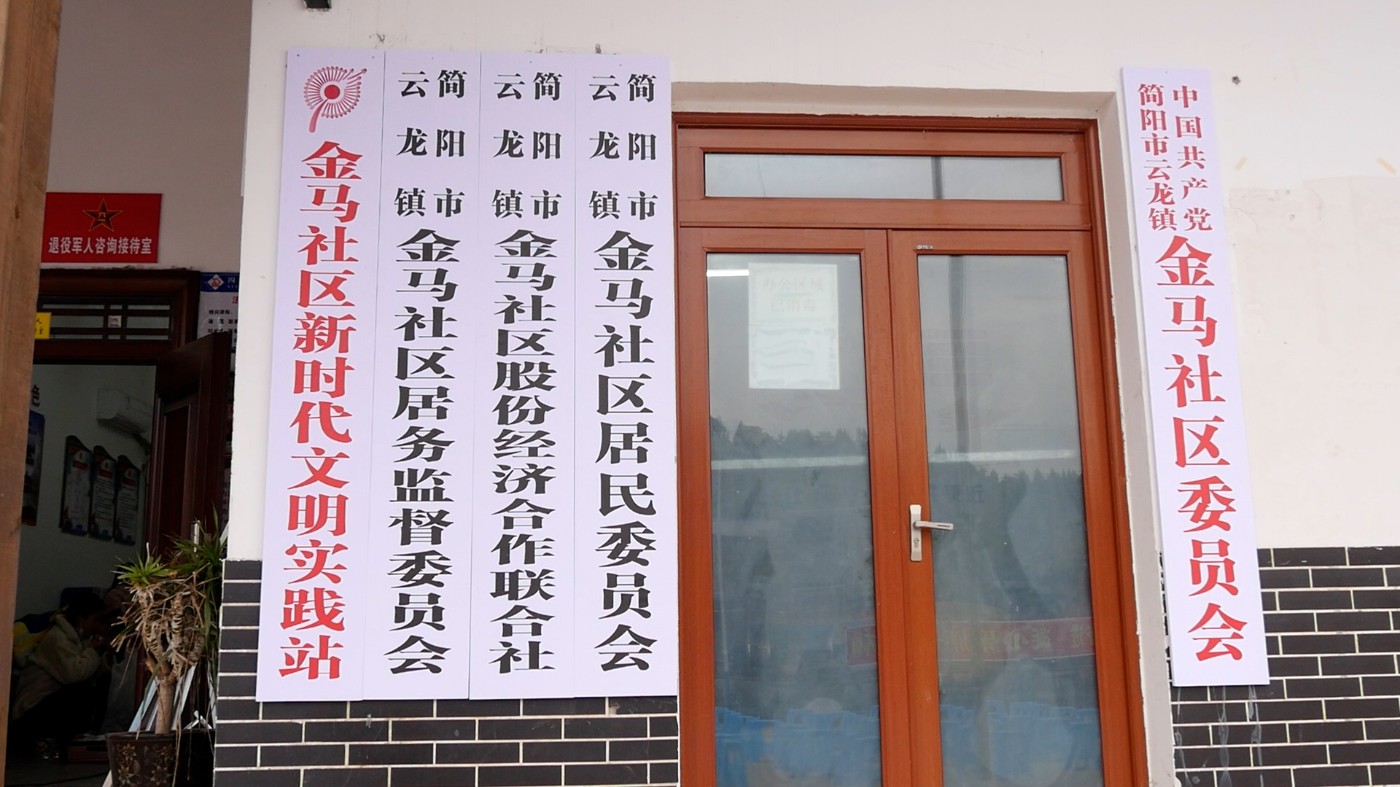 金马社区新时代文明实践站
简阳市
云龙镇
金马社区居务监督委员会
简阳市
云龙镇
金马社区股份经济合作联合社
简阳市
云龙镇
金马社区居民委员会
中国共产党
简阳市云龙镇
金马社区委员会
退役军人咨询接待室